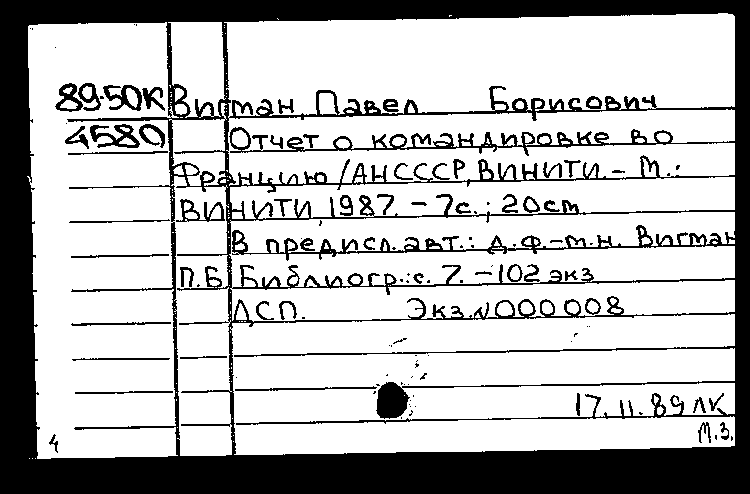 89-50К Вигман, Павел Борисович
4580 Отчет о командировке во
Францию /АН СССР, ВИНИТИ. - М.:
ВИНИТИ, 1987. - 7с.; 20см
В предисл. авт.: д.ф.-м.н. Вигман
П.Б Библиогр.: с. 7. - 102 экз
ДСП. Экз. N 000008
17.11.89 ЛК
М.З.
4